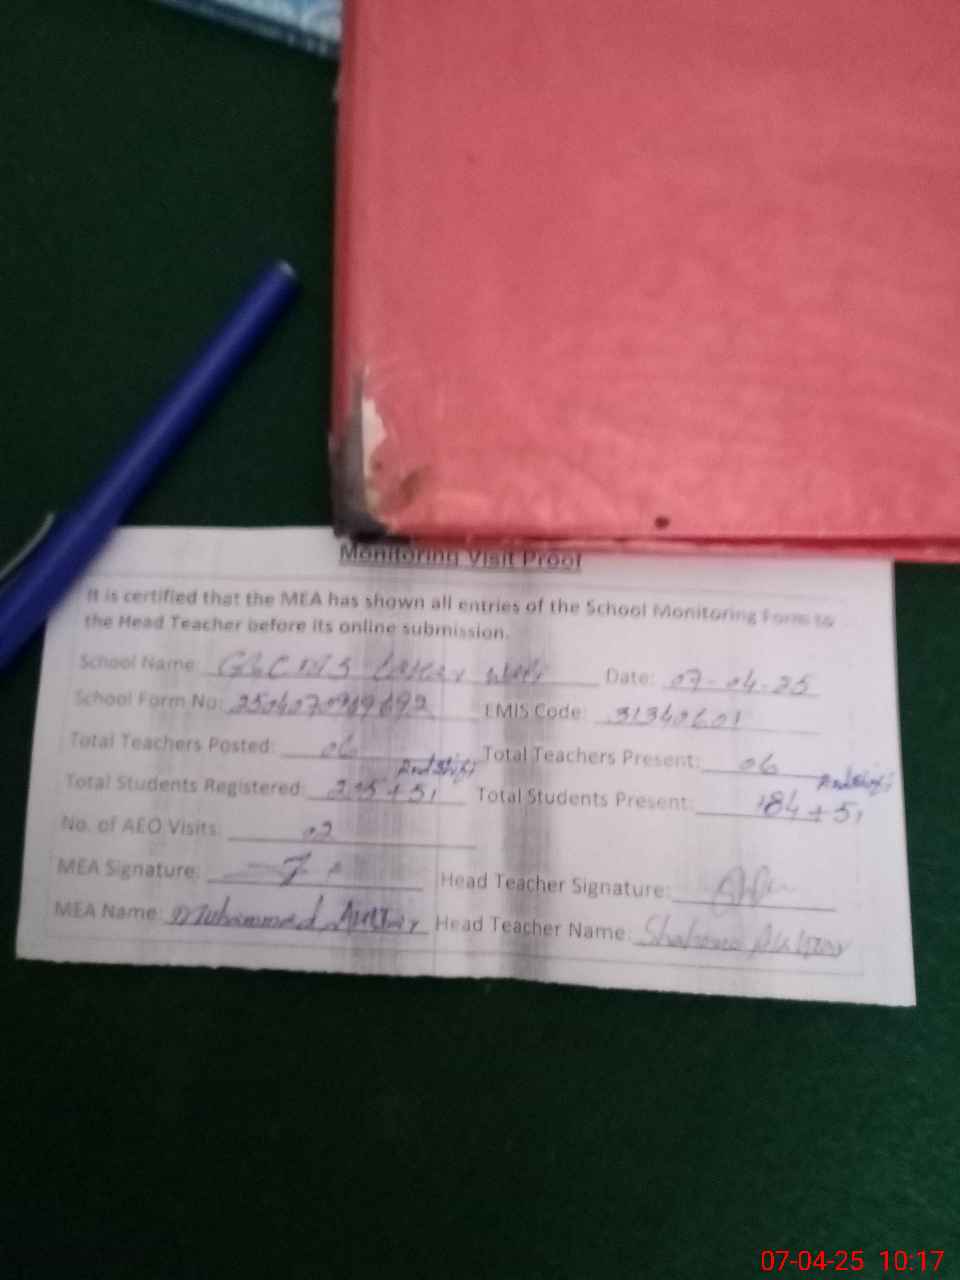 Monitoring Visit Proof
It is certified that the MEA has shown all entries of the School Monitoring Form to
the Head Teacher before its online submission.
School Name: Date: 07-04-25
School Form No: EMIS Code: 31340601
Total Teachers Posted: 06 Total Teachers Present: 06
2nd Shift 2nd Shift
Total Students Registered: + 51 Total Students Present: 184 + 51
No. of AEO Visits: 02
MEA Signature: Head Teacher Signature:
MEA Name: Muhammad Head Teacher Name:
07-04-25 10:17